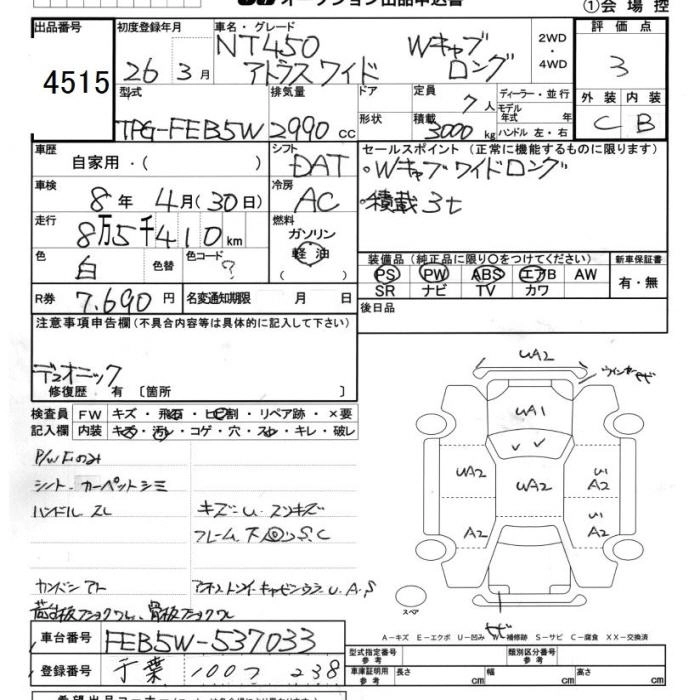 オークション出品申込書
①会場控
出品番号
4515
初度登録年月
26年 3月
車名・グレード
NT450 Wキャブ
アトラス ワイド ロング
2WD
・
4WD
評価点
3
外装 内装
C B
型式
TPG-FEB5W
排気量
2990 cc
ドア
形状
定員
7人
積載
3000 kg
ディーラー・並行
モデル
年式 年
ハンドル 左・右
車歴
自家用・( )
シフト
DAT
セールスポイント (正常に機能するものに限ります)
・Wキャブワイドロング
・積載3t
車検
8年 4月(30日)
冷房
AC
走行
8万5千410km
燃料
ガソリン
軽油
( )
色
白
色替
色コード
?
装備品 (純正品に限り○をつけてください)
PS PW ABS エアB AW
SR ナビ TV カワ
新車保証書
有・無
R券 7,690円
名変通知期限 月 日
後日品
注意事項申告欄(不具合内容等は具体的に記入して下さい)
デュオニック
修復歴 有 〔箇所 〕
検査員
記入欄
FW キズ・飛石・ヒビ割・リペア跡・×要
内装 キズ・汚レ・コゲ・穴・スレ・キレ・破レ
P/W Fのみ
シート・カーペットシミ
ハンドル スレ
キズ・U・スリキズ
UA2
UA1
UA2
UA2
A2
A2
A2
サビ
スペア
A－キズ E－エクボ U－凹み W－補修跡 S－サビ C－腐食 XX－交換済
車台番号 FEB5W-537033
登録番号 千葉 100つ 238
型式指定番号
参考
類別区分番号
参考
車庫証明用
参考
長さ cm 幅 cm 高さ cm